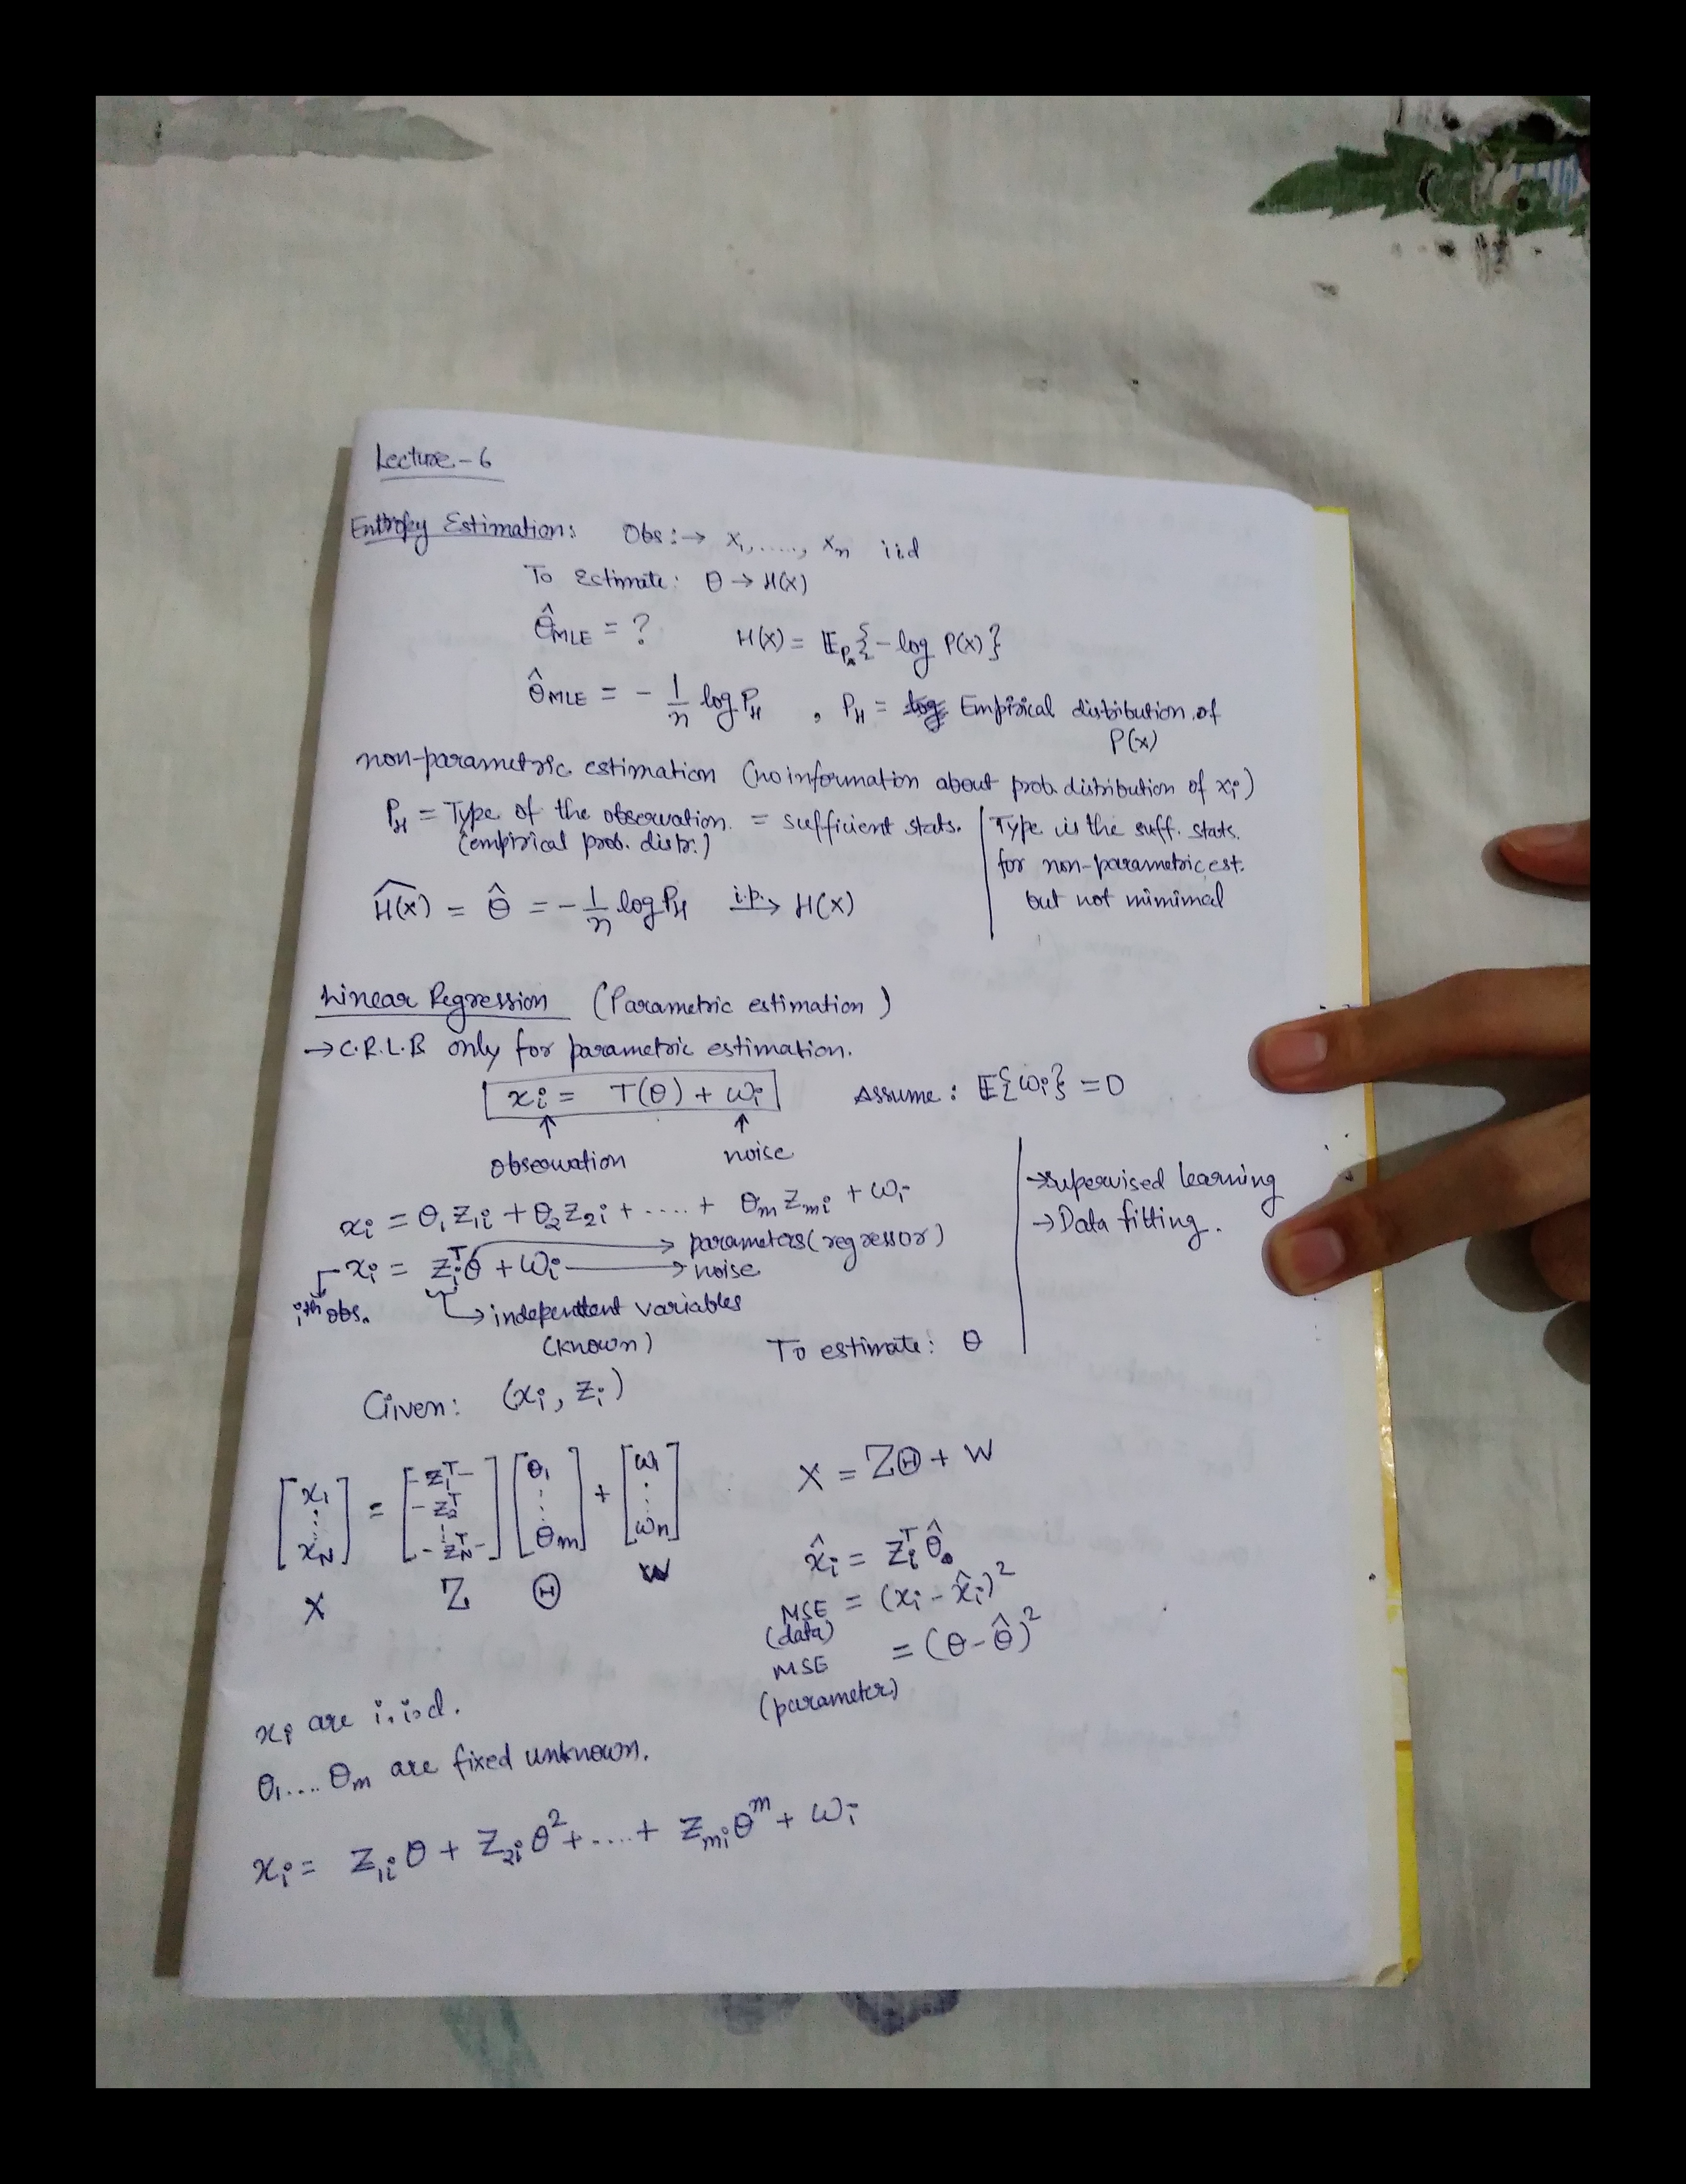 Lecture - 6
Entropy Estimation: Obs :→ x₁, ....., xₙ iid
To Estimate: θ → H(X)
θ̂MLE = ? H(X) = 𝔼Pₓ{-log P(X)}
θ̂MLE = - 1/n log P_H , P_H = Empirical distribution of
P(x)
non-parametric estimation (no information about prob. distribution of xi)
P_H = Type of the observation = sufficient stats.
(empirical prob. distr.)
Type is the suff. stats.
for non-parametric est.
but not mimimal
Ĥ(X) = θ̂ = - 1/n log P_H i.p.→ H(X)
Linear Regression (Parametric estimation)
→ C.R.L.B only for parametric estimation.
xi = T(θ) + ωi Assume : 𝔼{ωi} = 0
↑ ↑
observation noise
xi = θ₁z₁i + θ₂z₂i + ..... + θm zmi + ωi
→ parameters (regressor)
xi = ziᵀθ + ωi → noise
ith obs. → independent variables
(known)
→ supervised learning
→ Data fitting.
To estimate: θ
Given: (xi, zi)
[x₁ ⋮ xN] = [-z₁ᵀ- -z₂ᵀ ⋮ -zNᵀ-] [θ₁ ⋮ θm] + [ω₁ ⋮ ωn]
X Z Θ W
X = ZΘ + W
x̂i = ziᵀθ̂.
MSE = (xi - x̂i)²
(data)
MSE = (θ - θ̂)²
(parameter)
xi are i.i.d.
θ₁.... θm are fixed unknown.
xi = z₁iθ + z₂iθ² + .... + zmiθᵐ + ωi